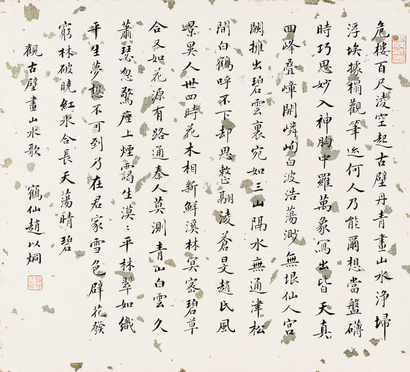 危樓百尺凌空起古壁丹青畫山水淨埽
浮埃據榻觀筆迹何人乃能爾想當盤礴
時巧思妙入神胸中羅萬象寫出皆天真
四峰疊嶂開嶙峋白波浩蕩渺無垠仙人宮
闕擁出碧雲裏宛如三山隔水無通津松
間白鶴呼不下却思整翮凌蒼旻趙氏風
景異人世四時花木相新鮮溪林冥密碧草
合又如花源有路通秦人莫測青山白雲久
蕭瑟忽驚座上煙靄生漠〻平林翠如織
平生夢想不可到乃在君家雪色壁花發
窮林破曉紅水合長天蕩晴碧
觀古壁畫山水歌 鶴仙趙以炯